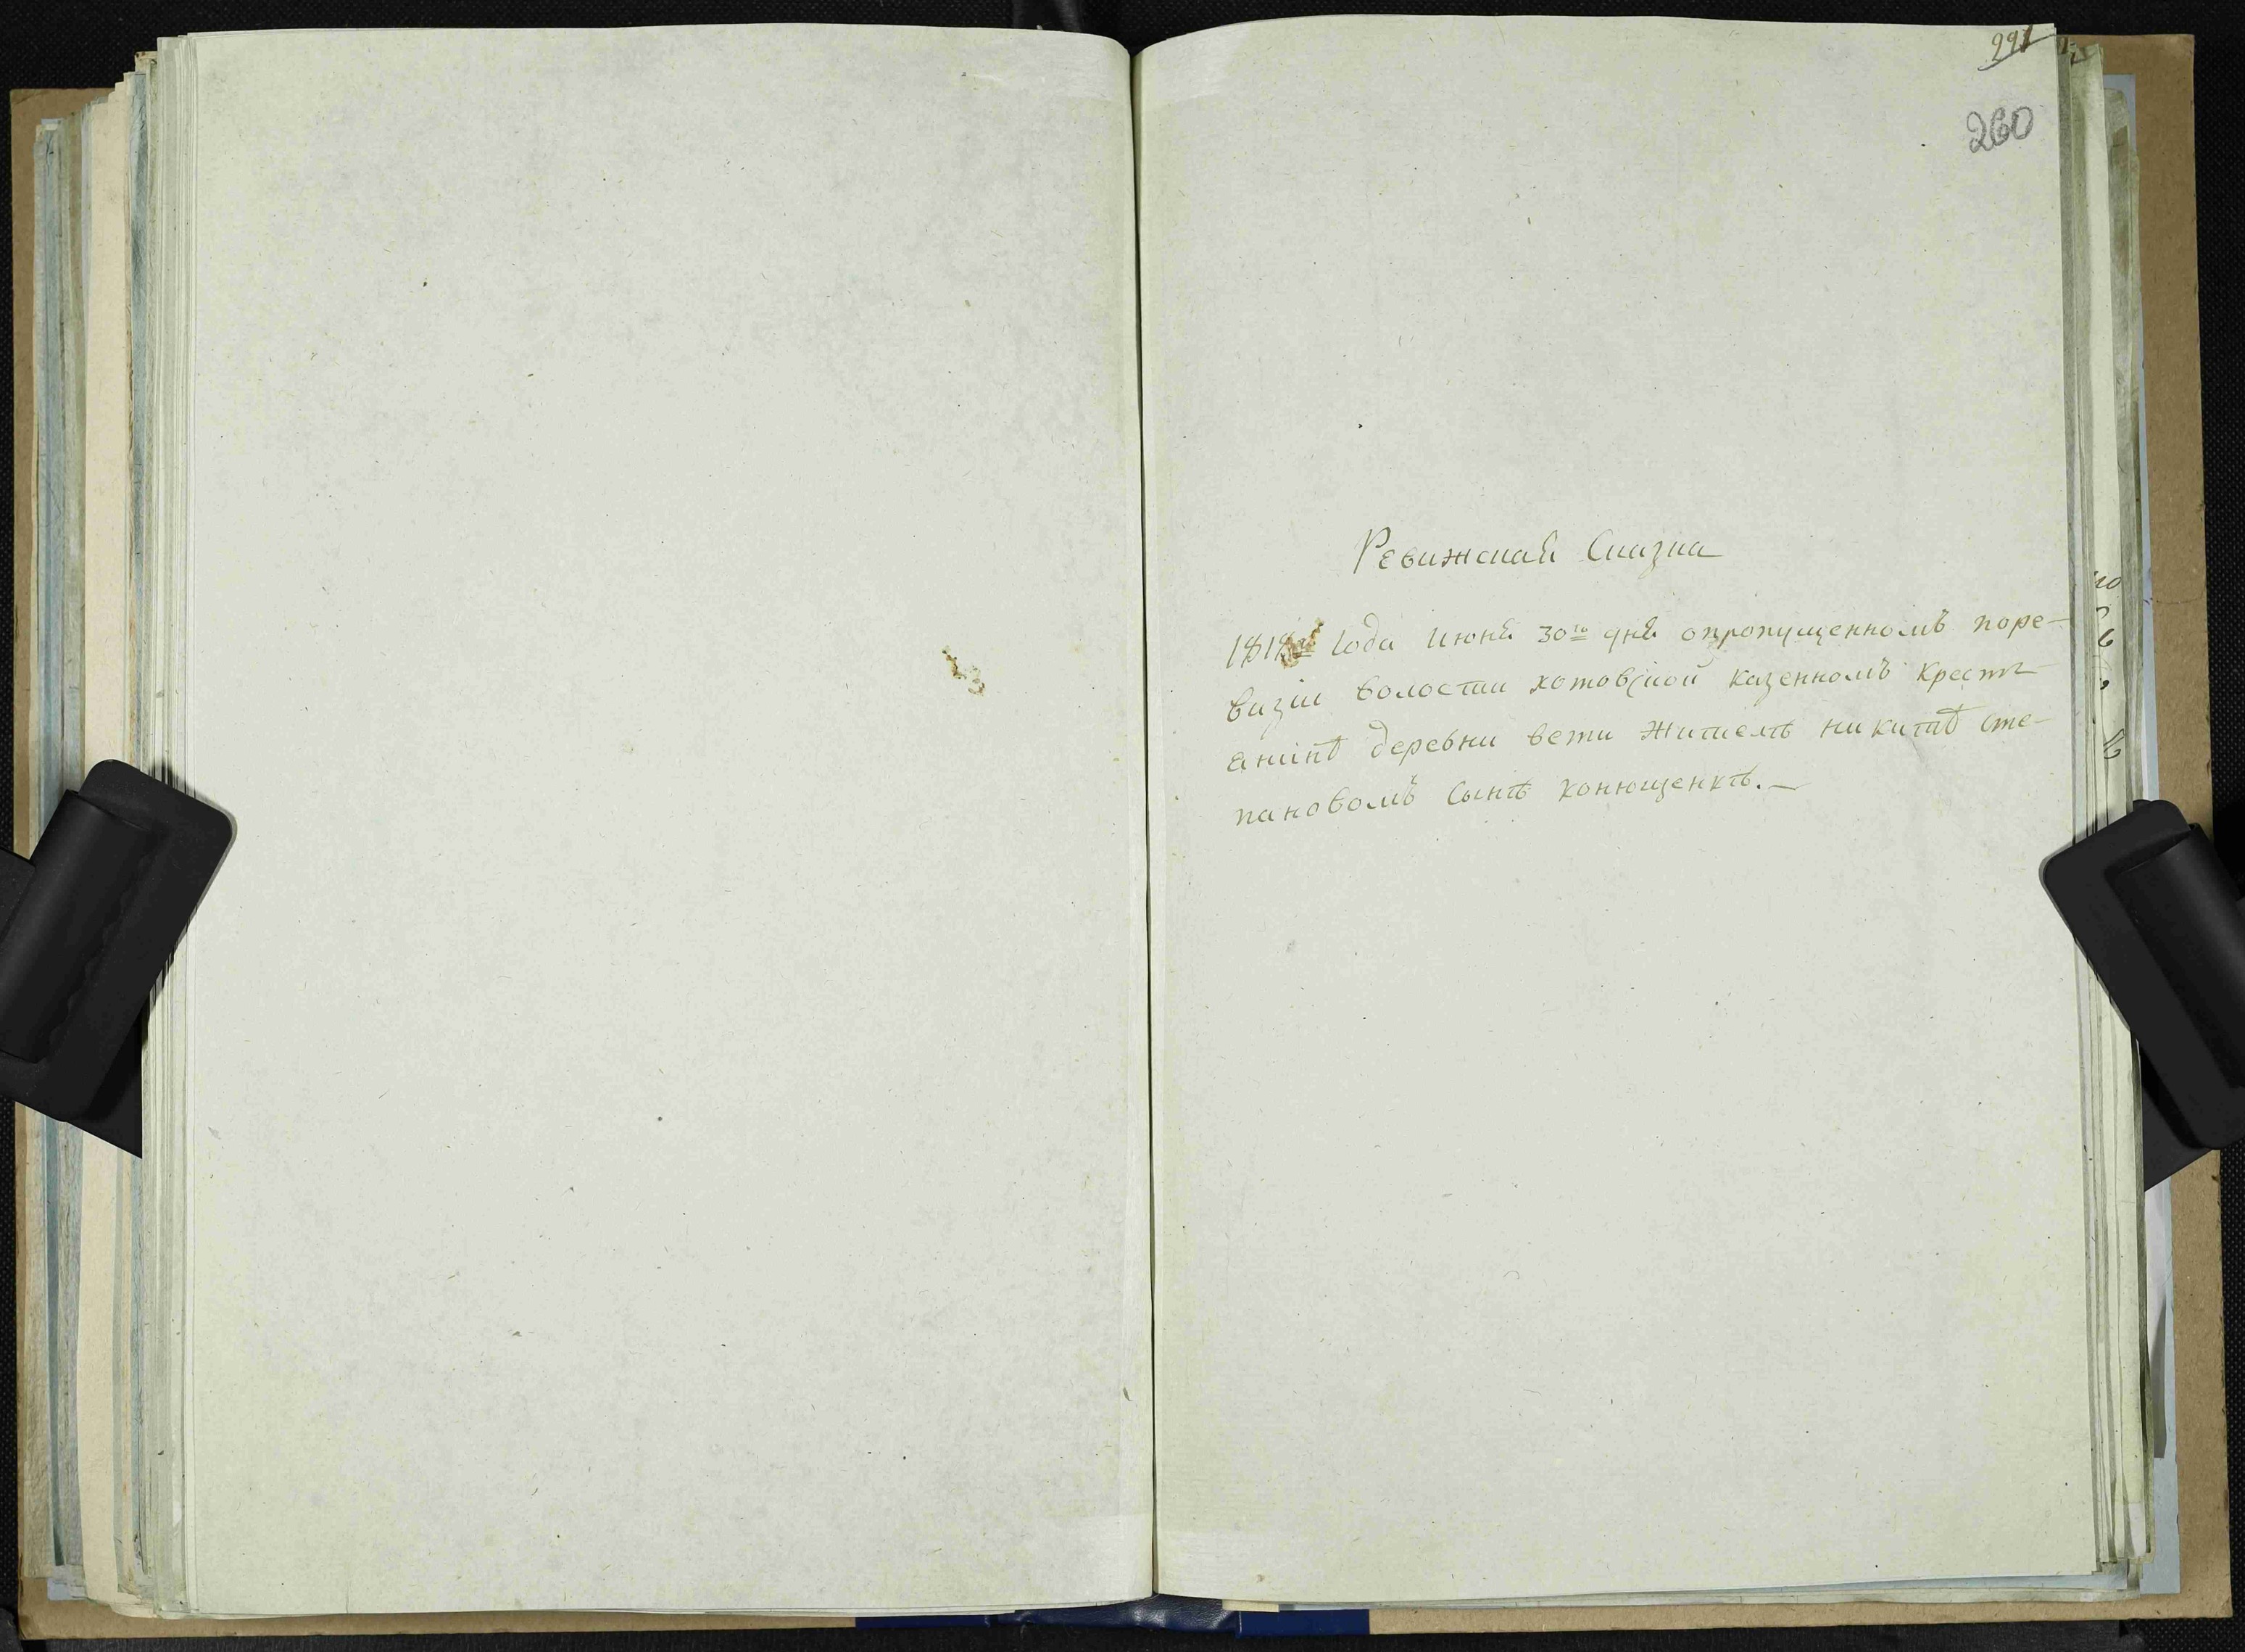 291
260
Ревижская Сказка
1818го Года июня 30го дня опропущенномъ поре-
визіи волости хотовской казенномъ крестья-
янинѣ деревни вети жителѣ никитѣ сте-
пановомъ сынѣ конющенкѣ.—